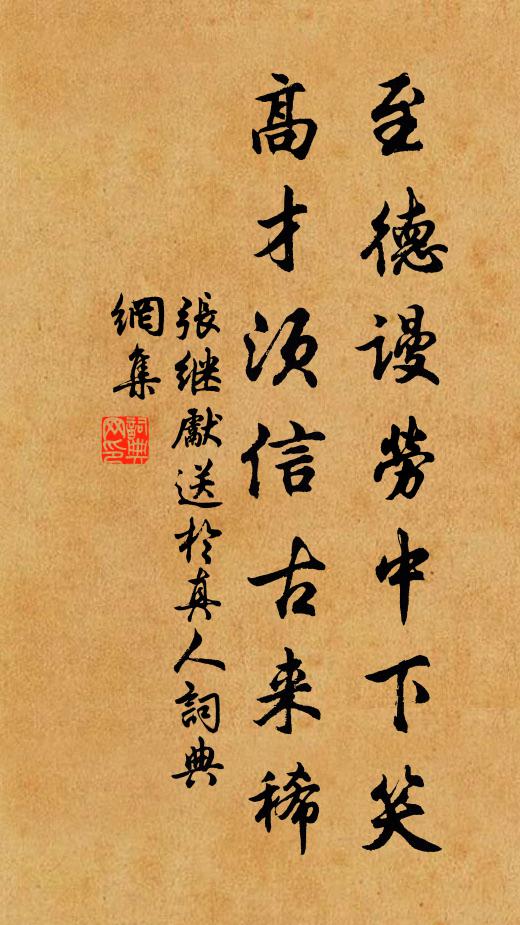 至德谩勞中下笑
高才须信古来稀
張继獻送於真人詞典
網集
詞典
网印